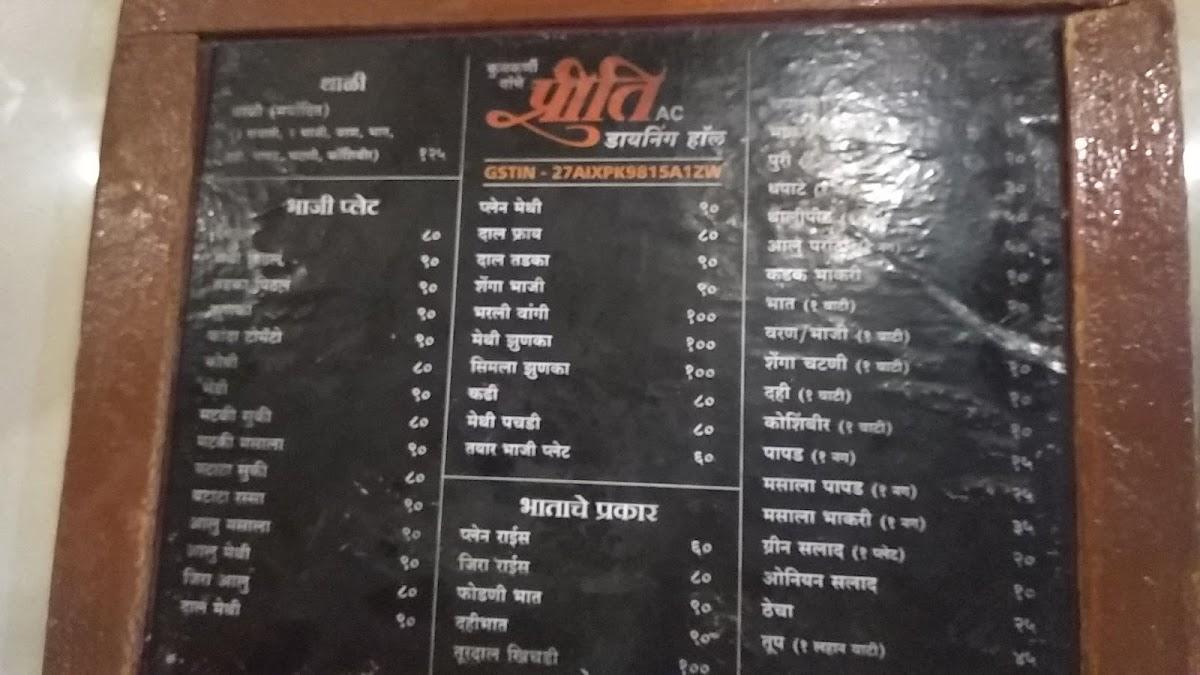 थाळी
१ भाजी, वरण, भात,
चटणी, कोशिंबीर) १२५
भाजी प्लेट
८०
९०
तडका पिठलं ९०
९०
कांदा टोमॅटो ९०
कोबी ८०
मेथी ९०
मटकी सुकी ८०
मटकी मसाला ९०
बटाटा सुकी ८०
बटाटा रस्सा ९०
आलु मसाला ९०
आलु मेथी ९०
जिरा आलु ८०
दाल मेथी ९०
कुलकर्णी
यांचे
प्रीति AC
डायनिंग हॉल
GSTIN - 27AIXPK9815A1ZW
प्लेन मेथी ९०
दाल फ्राय ८०
दाल तडका ९०
शेंगा भाजी ९०
भरली वांगी १००
मेथी झुणका १००
सिमला झुणका १००
कढी ८०
मेथी पचडी ८०
तयार भाजी प्लेट ६०
भाताचे प्रकार
प्लेन राईस ६०
जिरा राईस ८०
फोडणी भात ९०
दहीभात ९०
तूरदाल खिचडी १००
पुरी
धपाटे ३०
थालीपीठ
आलु पराठा
कडक भाकरी
भात (१ वाटी)
वरण/भाजी (१ वाटी)
शेंगा चटणी (१ वाटी) १०
दही (१ वाटी) १०
कोशिंबीर (१ वाटी) १०
पापड (१ नग) १५
मसाला पापड (१ नग) २५
मसाला भाकरी (१ नग) ३५
ग्रीन सलाद (१ प्लेट) २०
ओनियन सलाद १०
ठेचा २५
तूप (१ लहान वाटी) ४५